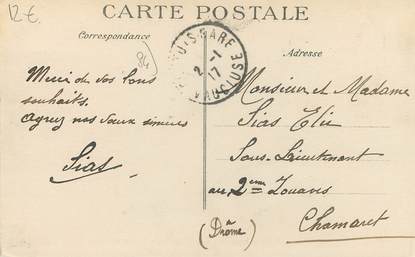 12€
CARTE POSTALE
Correspondance
Adresse
84
S-GARE
2 -1
17
VAUCLUSE
Merci de vos bons
souhaits.
Agréez nos vœux sincères
Sias
Monsieur et Madame
Sias Elie
Sous-Lieutenant
au 2ème Zouaves
Chamaret
(Drôme)